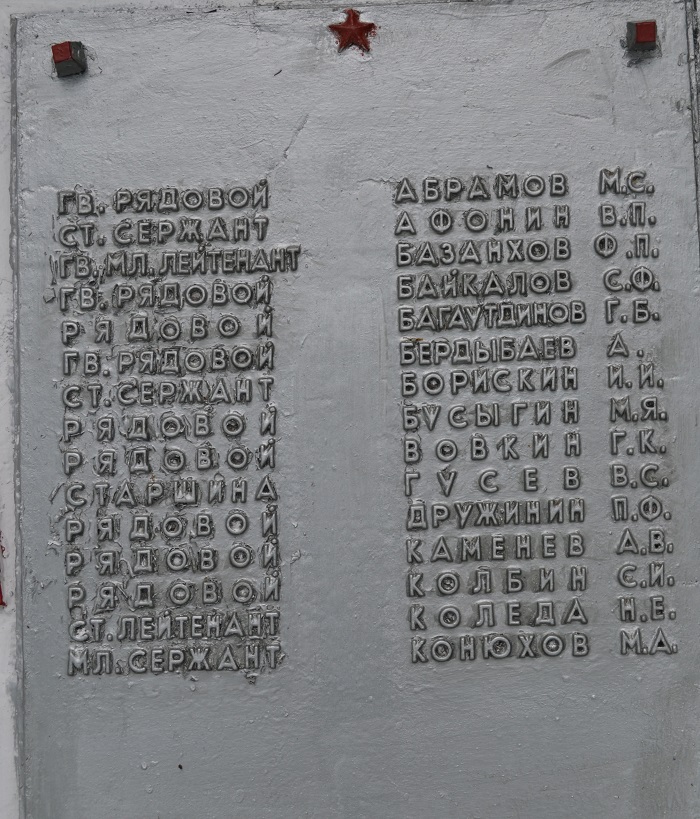 ГВ. РЯДОВОЙ АБРАМОВ М.С.
СТ. СЕРЖАНТ АФОНИН В.П.
ГВ. МЛ. ЛЕЙТЕНАНТ БАЗАНХОВ Ф.П.
ГВ. РЯДОВОЙ БАЙКАЛОВ С.Ф.
РЯДОВОЙ БАГАУТДИНОВ Г.Б.
ГВ. РЯДОВОЙ БЕРДЫБАЕВ А.
СТ. СЕРЖАНТ БОРИСКИН И.И.
РЯДОВОЙ БУСЫГИН М.Я.
РЯДОВОЙ ВОВКИН Г.К.
СТАРШИНА ГУСЕВ В.С.
РЯДОВОЙ ДРУЖИНИН П.Ф.
РЯДОВОЙ КАМЕНЕВ А.В.
РЯДОВОЙ КОЛБИН С.И.
СТ. ЛЕЙТЕНАНТ КОЛЕДА Н.Е.
МЛ. СЕРЖАНТ КОНЮХОВ М.А.